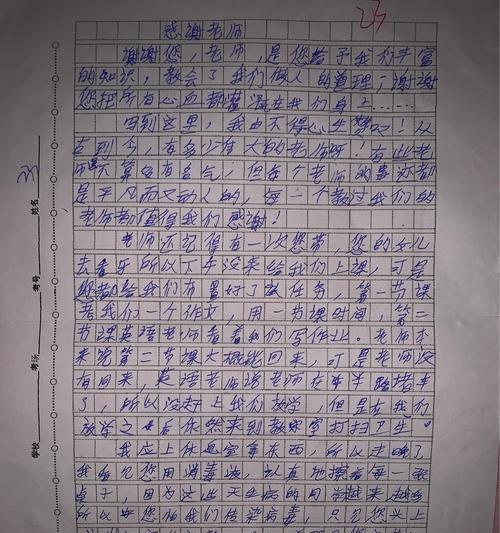 23
感谢老师
谢谢您,老师,是您给予我们丰富
的知识,教会了我们做人的道理;谢谢
您把所有心血都灌溉在我们身上……
写到这里,我由不得心生赞叹!从
古到今,有多少伟大的老师呀!有些老
师不算多有名气,但每个老师的事迹都
是平凡而又动人的,每一个教过我们的
老师都值得我们感谢!
老师还记得有一次您带,您的女儿
去看牙所以下午没来给我们上课,可是
您都给我们布置好了任务,第一节课
考我们一个作文,用一节课时间,第二
节课英语老师看着我们写作业。老师本
来说第二节课大概能回来,可是老师没
有回来,英语老师说老师在半路堵车
了,所以没赶上我们放学,但是在我们
放学之后依然来到教室打扫卫生。
我应上休息室拿东西,所以走晚了,
我看见您用消毒液,认真地擦着每一张
桌子,因为这些天生病的同学越来越多
所以您怕我们传染病毒,只见您头上
学校
考场
考号
姓名